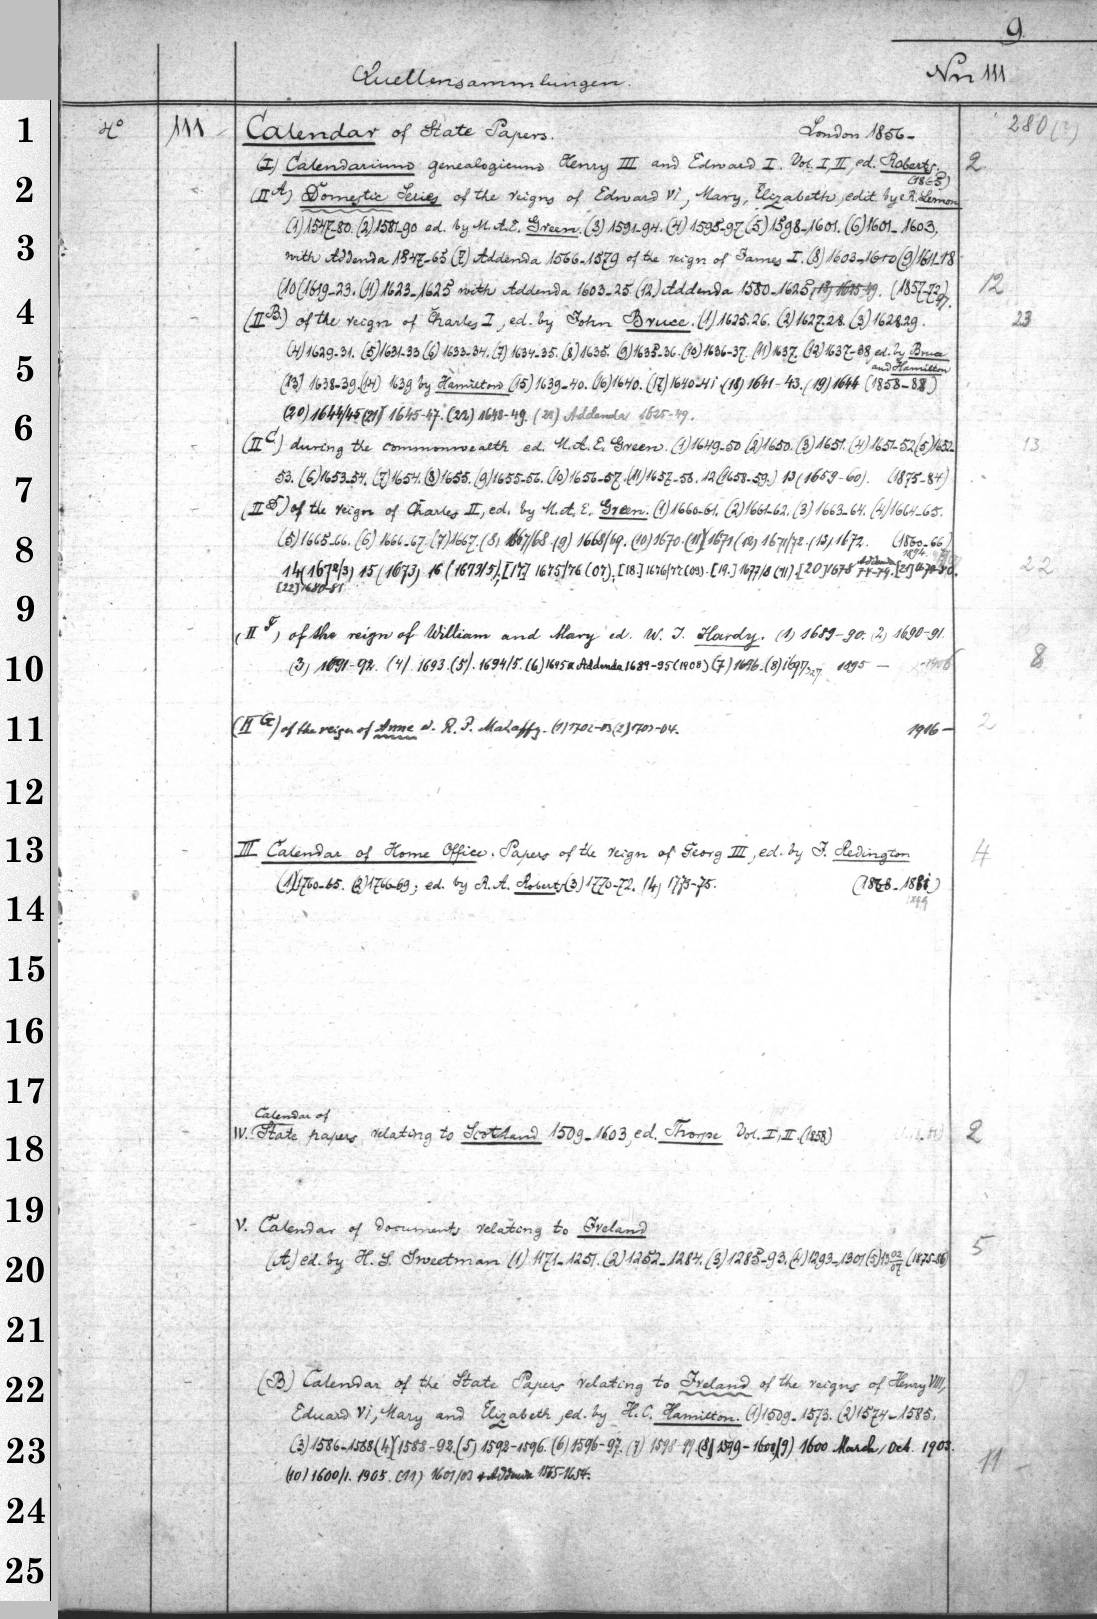 9
Quellensammlungen.
Nrr 111
1
4° 111 Calendar of State Papers. London 1856- 280 (?)
(I) Calendarium genealogicum Henry III and Edward I. Vol. I, II, ed. Roberts. 2
(1865)
2
(II A) Domestic Series of the reigns of Edward VI, Mary, Elizabeth, edit by R. Lemon
(1) 1547-80. (2) 1581-90 ed. by M. A. E. Green. (3) 1591-94. (4) 1595-97. (5) 1598-1601. (6) 1601-1603,
3
with Addenda 1547-65 (7) Addenda 1566-1579 of the reign of James I. (8) 1603-1610 (9) 1611-18
(10) 1619-23. (11) 1623-1625 with Addenda 1603-25 (12) Addenda 1580-1625. (1857-72) 12
4
(II B) of the reign of Charles I, ed. by John Bruce. (1) 1625.26. (2) 1627.28. (3) 1628.29. 23
(4) 1629-31. (5) 1631-33 (6) 1633-34. (7) 1634-35. (8) 1635. (9) 1635-36. (10) 1636-37. (11) 1637. (12) 1637-38 ed. by Bruce
and Hamilton
5
(13) 1638-39. (14) 1639 by Hamilton (15) 1639-40. (16) 1640. (17) 1640-41. (18) 1641-43. (19) 1644 (1858-88)
(20) 1644/45 (21) 1645-47. (22) 1648-49. (23) Addenda 1625-49.
6
(II C) during the commonwealth ed. M. A. E. Green. (1) 1649-50 (2) 1650. (3) 1651. (4) 1651-52 (5) 1652- 13
53. (6) 1653-54. (7) 1654. (8) 1655. (9) 1655-56. (10) 1656-57. (11) 1657-58. 12 (1658-59.) 13 (1659-60). (1875-84)
7
(II D) of the reign of Charles II, ed. by M. A. E. Green. (1) 1660-61. (2) 1661-62. (3) 1663-64. (4) 1664-65.
(5) 1665-66. (6) 1666-67. (7) 1667. (8) 1667/68. (9) 1668/69. (10) 1670. (11) 1671 (12) 1671/72. (13) 1672. (1860-66)
8
1894.
14 (1672/3) 15 (1673) 16 (1673/5). [17] 1675/76 (07). [18.] 1676/77 (09). [19.] 1677/8 (11). [20] 1678 Addenda 74-79. [21] 1679-80. 22
[22] 1680-81
9
(II F) of the reign of William and Mary ed. W. J. Hardy. (1) 1689-90. (2) 1690-91.
10
(3) 1691-92. (4). 1693. (5). 1694/5. (6) 1695 & Addenda 1689-95 (1908) (7) 1696. (8) 1697. 1895 — 8
11
(II G) of the reign of Anne ed. R. P. Mahaffy. (1) 1702-03 (2) 1703-04. 1916 — 2
12
13
III Calendar of Home Office. Papers of the reign of Georg III, ed. by J. Redington 4
(1) 1760-65. (2) 1766-69; ed. by R. A. Roberts (3) 1770-72. (4) 1773-75. (1868-1881)
1899
14
15
16
17
Calendar of
18
IV. State papers, relating to Scotland 1509-1603, ed. Thorpe Vol. I, II. (1858) 2
19
V. Calendar of documents relating to Ireland
20
(A) ed. by H. S. Sweetman (1) 1171-1251. (2) 1252-1284. (3) 1285-93. (4) 1293-1301 (5) 1302/07 (1875-86) 5
21
22
(B) Calendar of the State Papers relating to Ireland of the reigns of Henry VIII,
Eduard VI, Mary and Elizabeth, ed. by H. C. Hamilton. (1) 1509-1573. (2) 1574-1585.
23
(3) 1586-1588 (4) 1588-92. (5) 1592-1596. (6) 1596-97. (7) 1598-99 (8) 1599-1600 (9) 1600 March/Oct. 1903.
(10) 1600/1. 1905. (11) 1601/03 & Addenda 1565-1654. 11
24
25